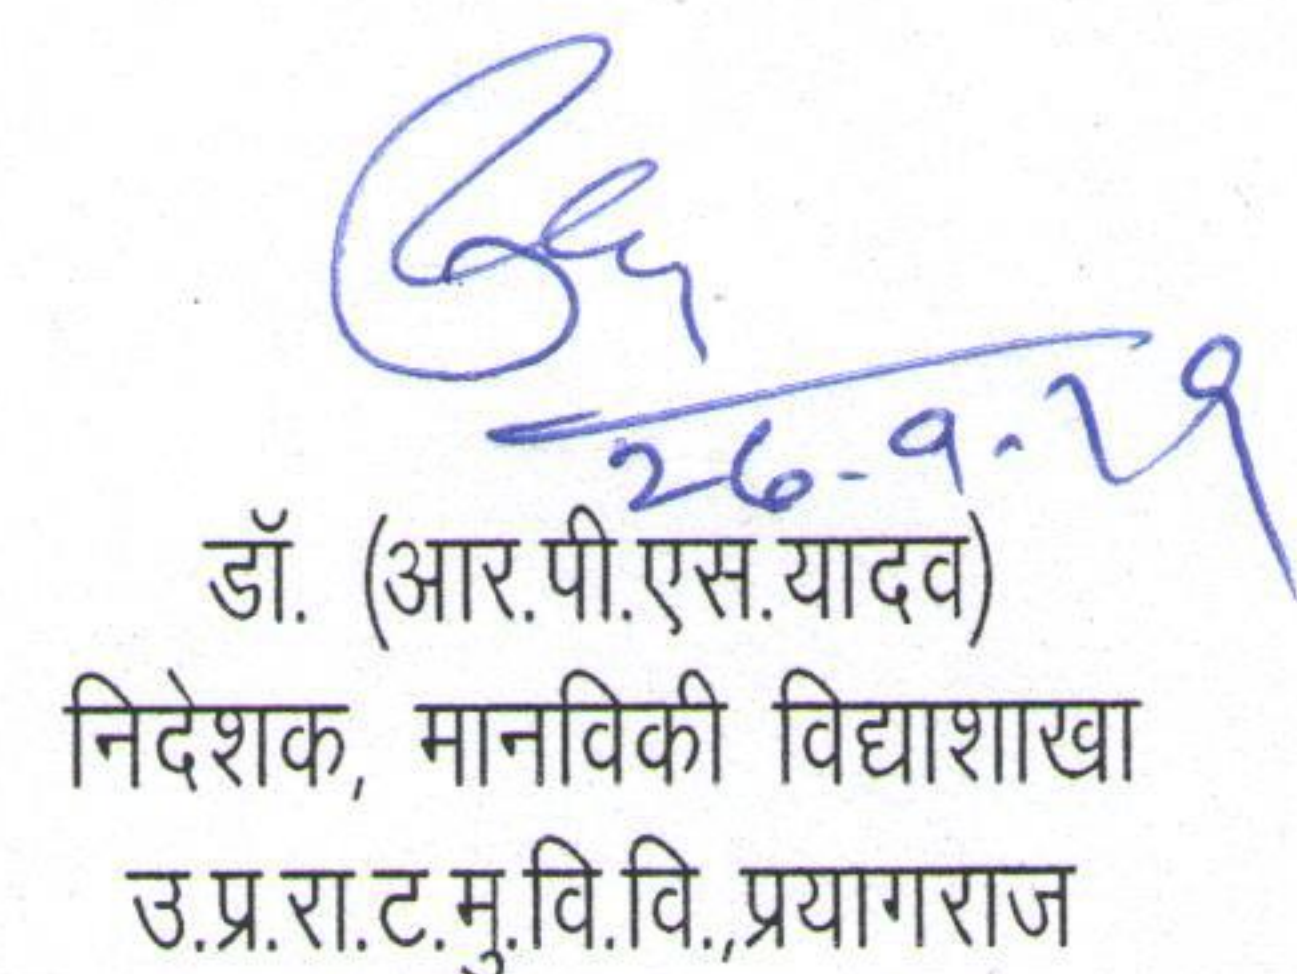 26-9-19
डॉ. (आर.पी.एस.यादव)
निदेशक, मानविकी विद्याशाखा
उ.प्र.रा.ट.मु.वि.वि.,प्रयागराज